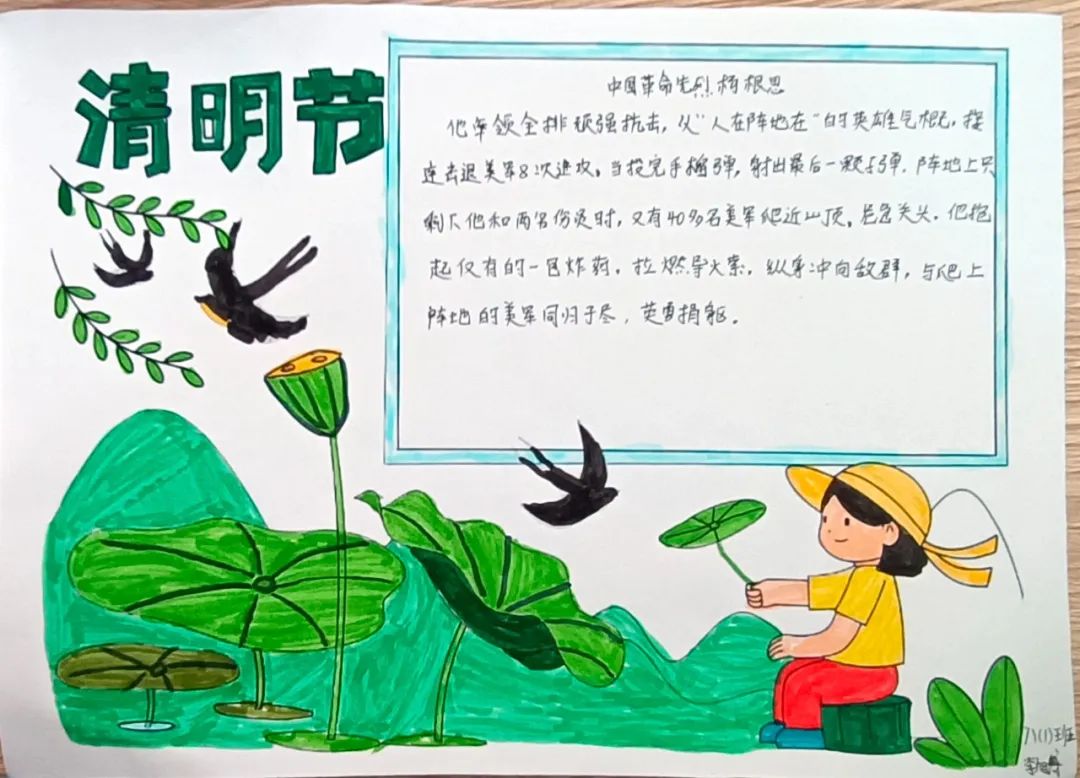 清明节
中国革命先烈杨根思
他率领全排顽强抗击，以"人在阵地在"的英雄气概，接
连击退美军8次进攻。当投完手榴弹，射出最后一颗子弹，阵地上只
剩下他和两名伤员时，又有40多名美军爬近山顶。危急关头，他抱
起仅有的一包炸药，拉燃导火索，纵身冲向敌群，与爬上
阵地的美军同归于尽，英勇捐躯。
八(1)班